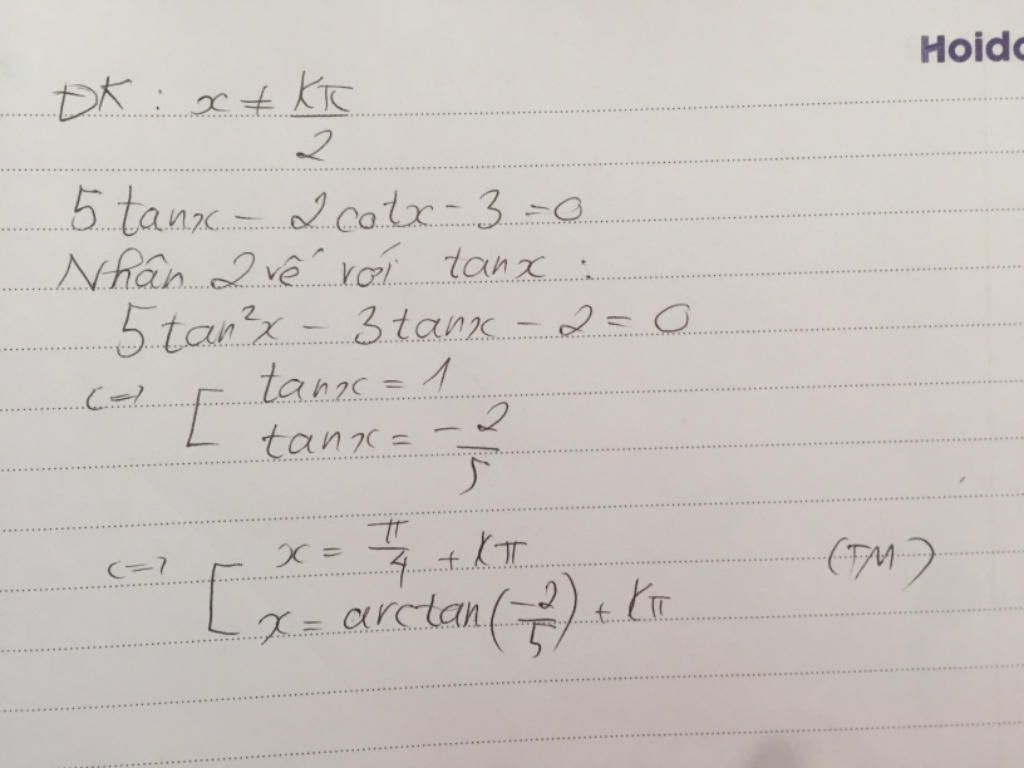 Hoid
ĐK : x ≠ kπ/2
5 tanx - 2 cotx - 3 = 0
Nhân 2 vế với tanx :
5 tan²x - 3 tanx - 2 = 0
<=> [ tanx = 1
tanx = -2/5
<=> [ x = π/4 + kπ (TM)
x = arctan(-2/5) + kπ